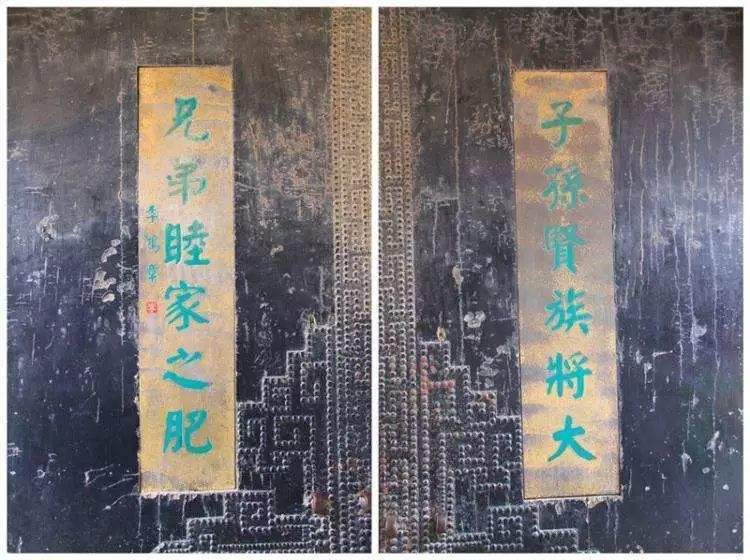 子孫賢族將大
兄弟睦家之肥
李鴻章